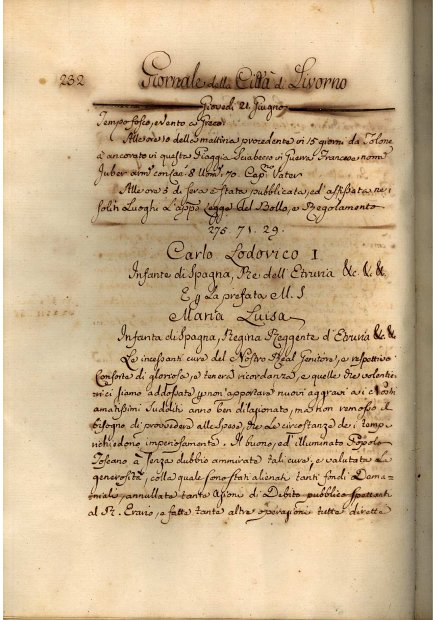 232 Giornale della Città di Livorno
Giovedì 21 Giugno
Tempo fosco, e Vento a Greco.
Alle ore 10 della mattina procedente in 15 giorni da Tolone
à ancorato in questa Piaggia Sciabecco di Guerra Francese nom.°
Juber arm. con sac: 8 Uom: 70. Cap.n Vater
Alle ore 3 di sera è stata pubblicata, ed affissata nei
soliti Luoghi L'app. Legge del Bollo, e Regolamento
275. 71. 29.
Carlo Lodovico I
Infante di Spagna, Re dell'Etruria &c. &c. &c.
E p La prefata M. S.
Maria Luisa
Infanta di Spagna, Regina Reggente d'Etruria &c. &c.
Le incessanti cure del Nostro Real Genitore, e respettivo
Consorte di gloriosa, e tenera ricordanza, e quelle che volentie
ri ci siamo addossate p non apportare nuovi aggravi ai Nostri
amatissimi Sudditi anno ben dilazionato, ma non remosso il
bisogno di provvedere alle spese, che le circostanze dei tempi
richiedono imperiosamente. Il buono, ed illuminato Popolo
Toscano à senza dubbio ammirate tali cure, e valutata la
generosità, colla quale sono stati alienati tanti fondi Dema-
niali, annullate tante azioni di Debito pubblico spettanti
al R. Erario, e fatte tante altre operazione tutte dirette